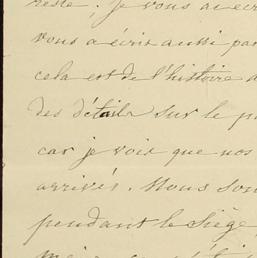 reste. je vous ai écr
vous a écrit aussi par
cela est de l'histoire a
des détails sur le p
car je vois que nos
arrivés. Nous son
pendant le siège